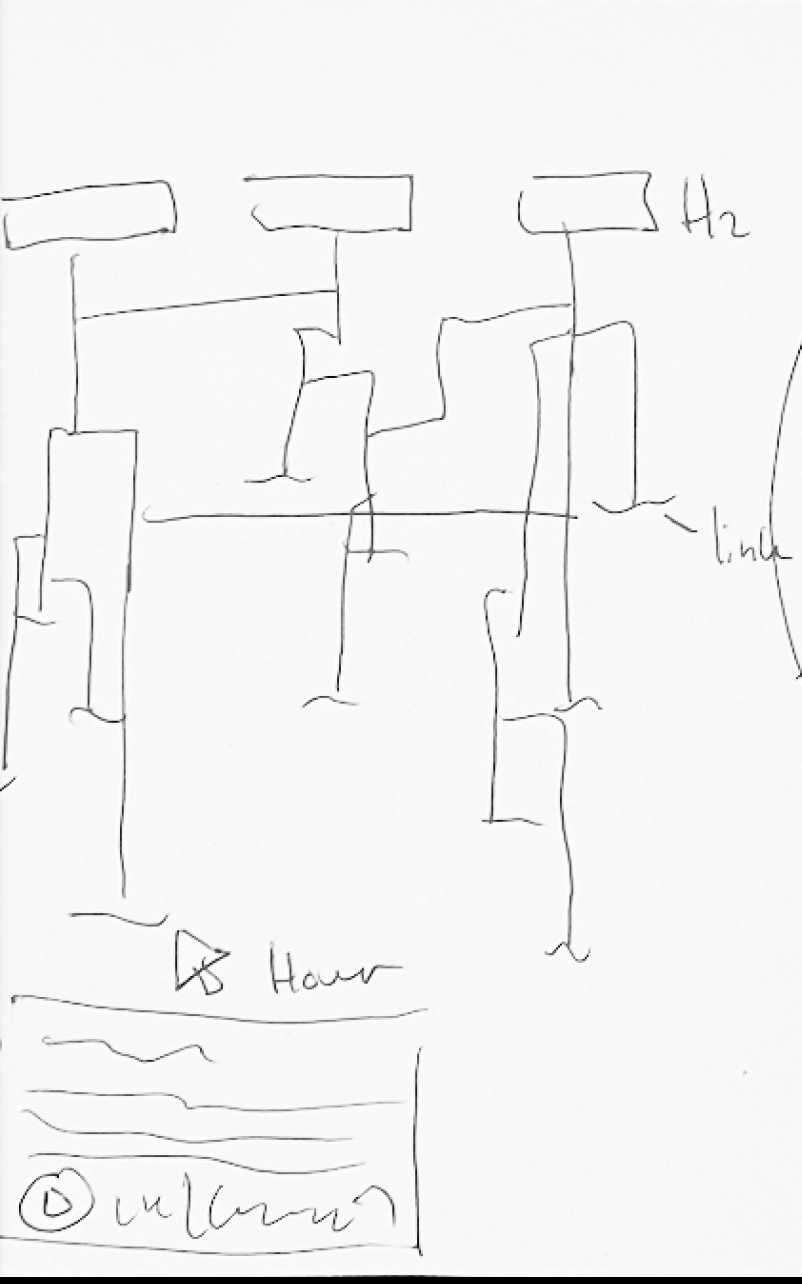 H2
link
Hover